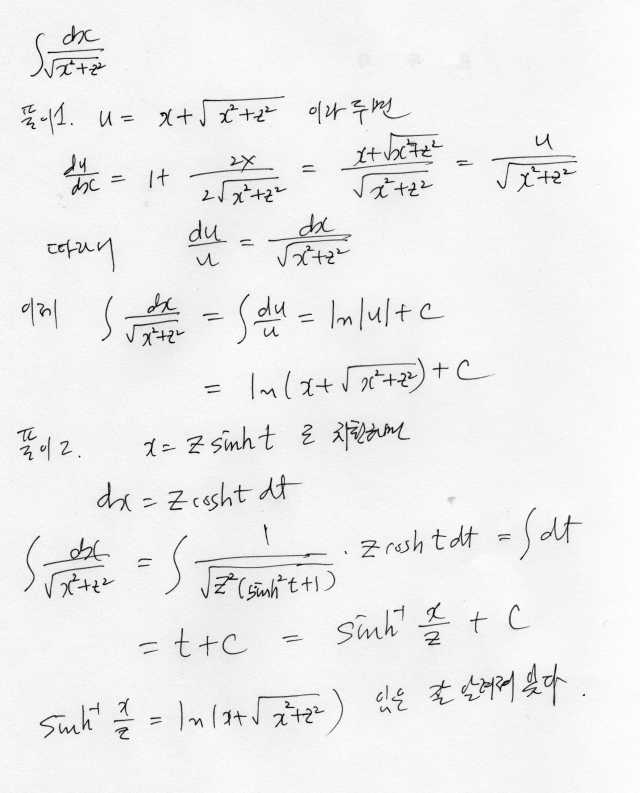 ∫ dx/√(x²+z²)
풀이1. u = x+√(x²+z²) 이라 두면
du/dx = 1+ 2x/(2√(x²+z²)) = (x+√(x²+z²))/√(x²+z²) = u/√(x²+z²)
따라서 du/u = dx/√(x²+z²)
이제 ∫ dx/√(x²+z²) = ∫ du/u = ln|u|+C
= ln(x+√(x²+z²))+C
풀이2. x = z sinh t 로 치환하면
dx = z cosh t dt
∫ dx/√(x²+z²) = ∫ 1/√(z²(sinh²t+1)) · z cosh t dt = ∫ dt
= t+C = sinh⁻¹ x/z + C
sinh⁻¹ x/z = ln(x+√(x²+z²)) 임은 잘 알려져 있다.